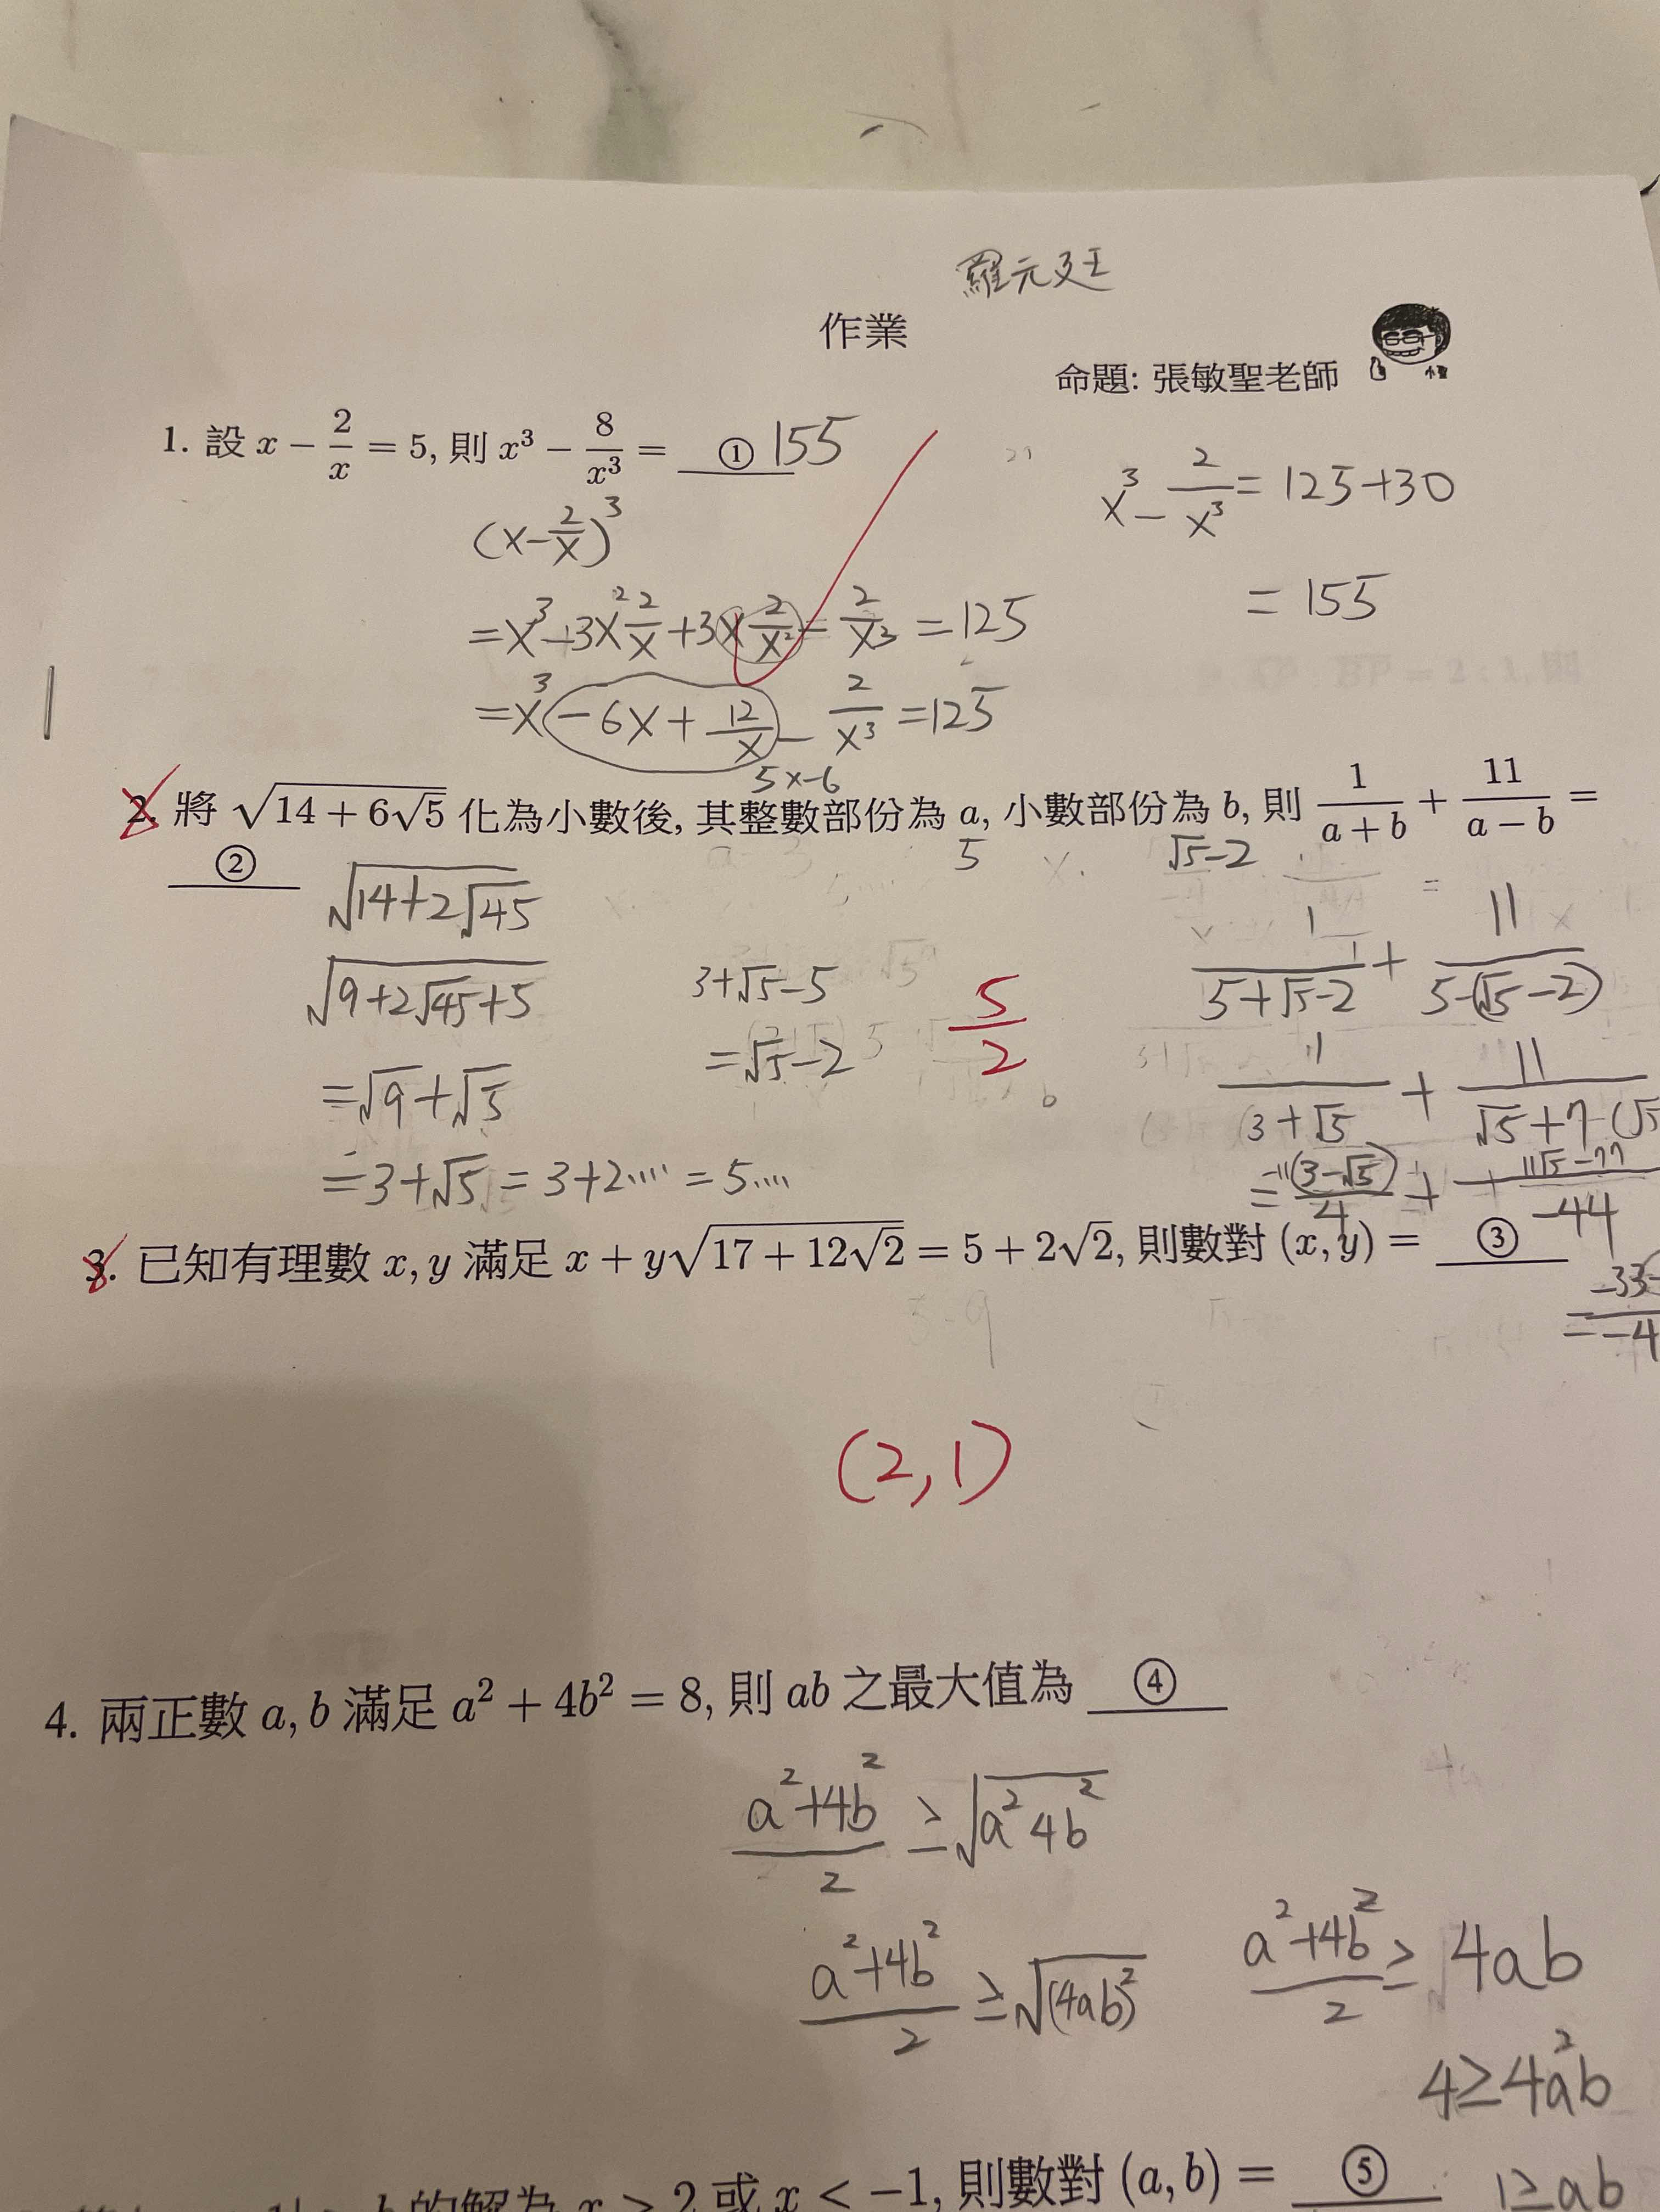 羅元廷
作業
命題: 張敏聖老師
小聖
1. 設 x − 2/x = 5, 則 x³ − 8/x³ = ① 155
(x−2/x)³
=x³−3x²2/x+3x2²/x²−2/x³=125
=x³−6x+12/x−2/x³=125
5×−6
x³−2/x³=125+30
=155
2. 將 √(14 + 6√5) 化為小數後, 其整數部份為 a, 小數部份為 b, 則 1/(a + b) + 11/(a − b) =
②
5
√5−2
√(14+2√45)
√(9+2√45+5)
=√9+√5
=3+√5=3+2....=5....
3+√5−5
=√5−2
5/2
1/(5+√5−2)+11/(5−(√5−2))
1/(3+√5)+11/(√5+7−(√5
3. 已知有理數 x, y 滿足 x + y√(17 + 12√2) = 5 + 2√2, 則數對 (x, y) = ③
(2,1)
4. 兩正數 a, b 滿足 a² + 4b² = 8, 則 ab 之最大值為 ④
(a²+4b²)/2≥√(a²4b²)
(a²+4b²)/2≥√((4ab)²)
(a²+4b²)/2≥4ab
4≥4a²b
1≥ab
b 的解為 x > 2 或 x < −1, 則數對 (a, b) = ⑤